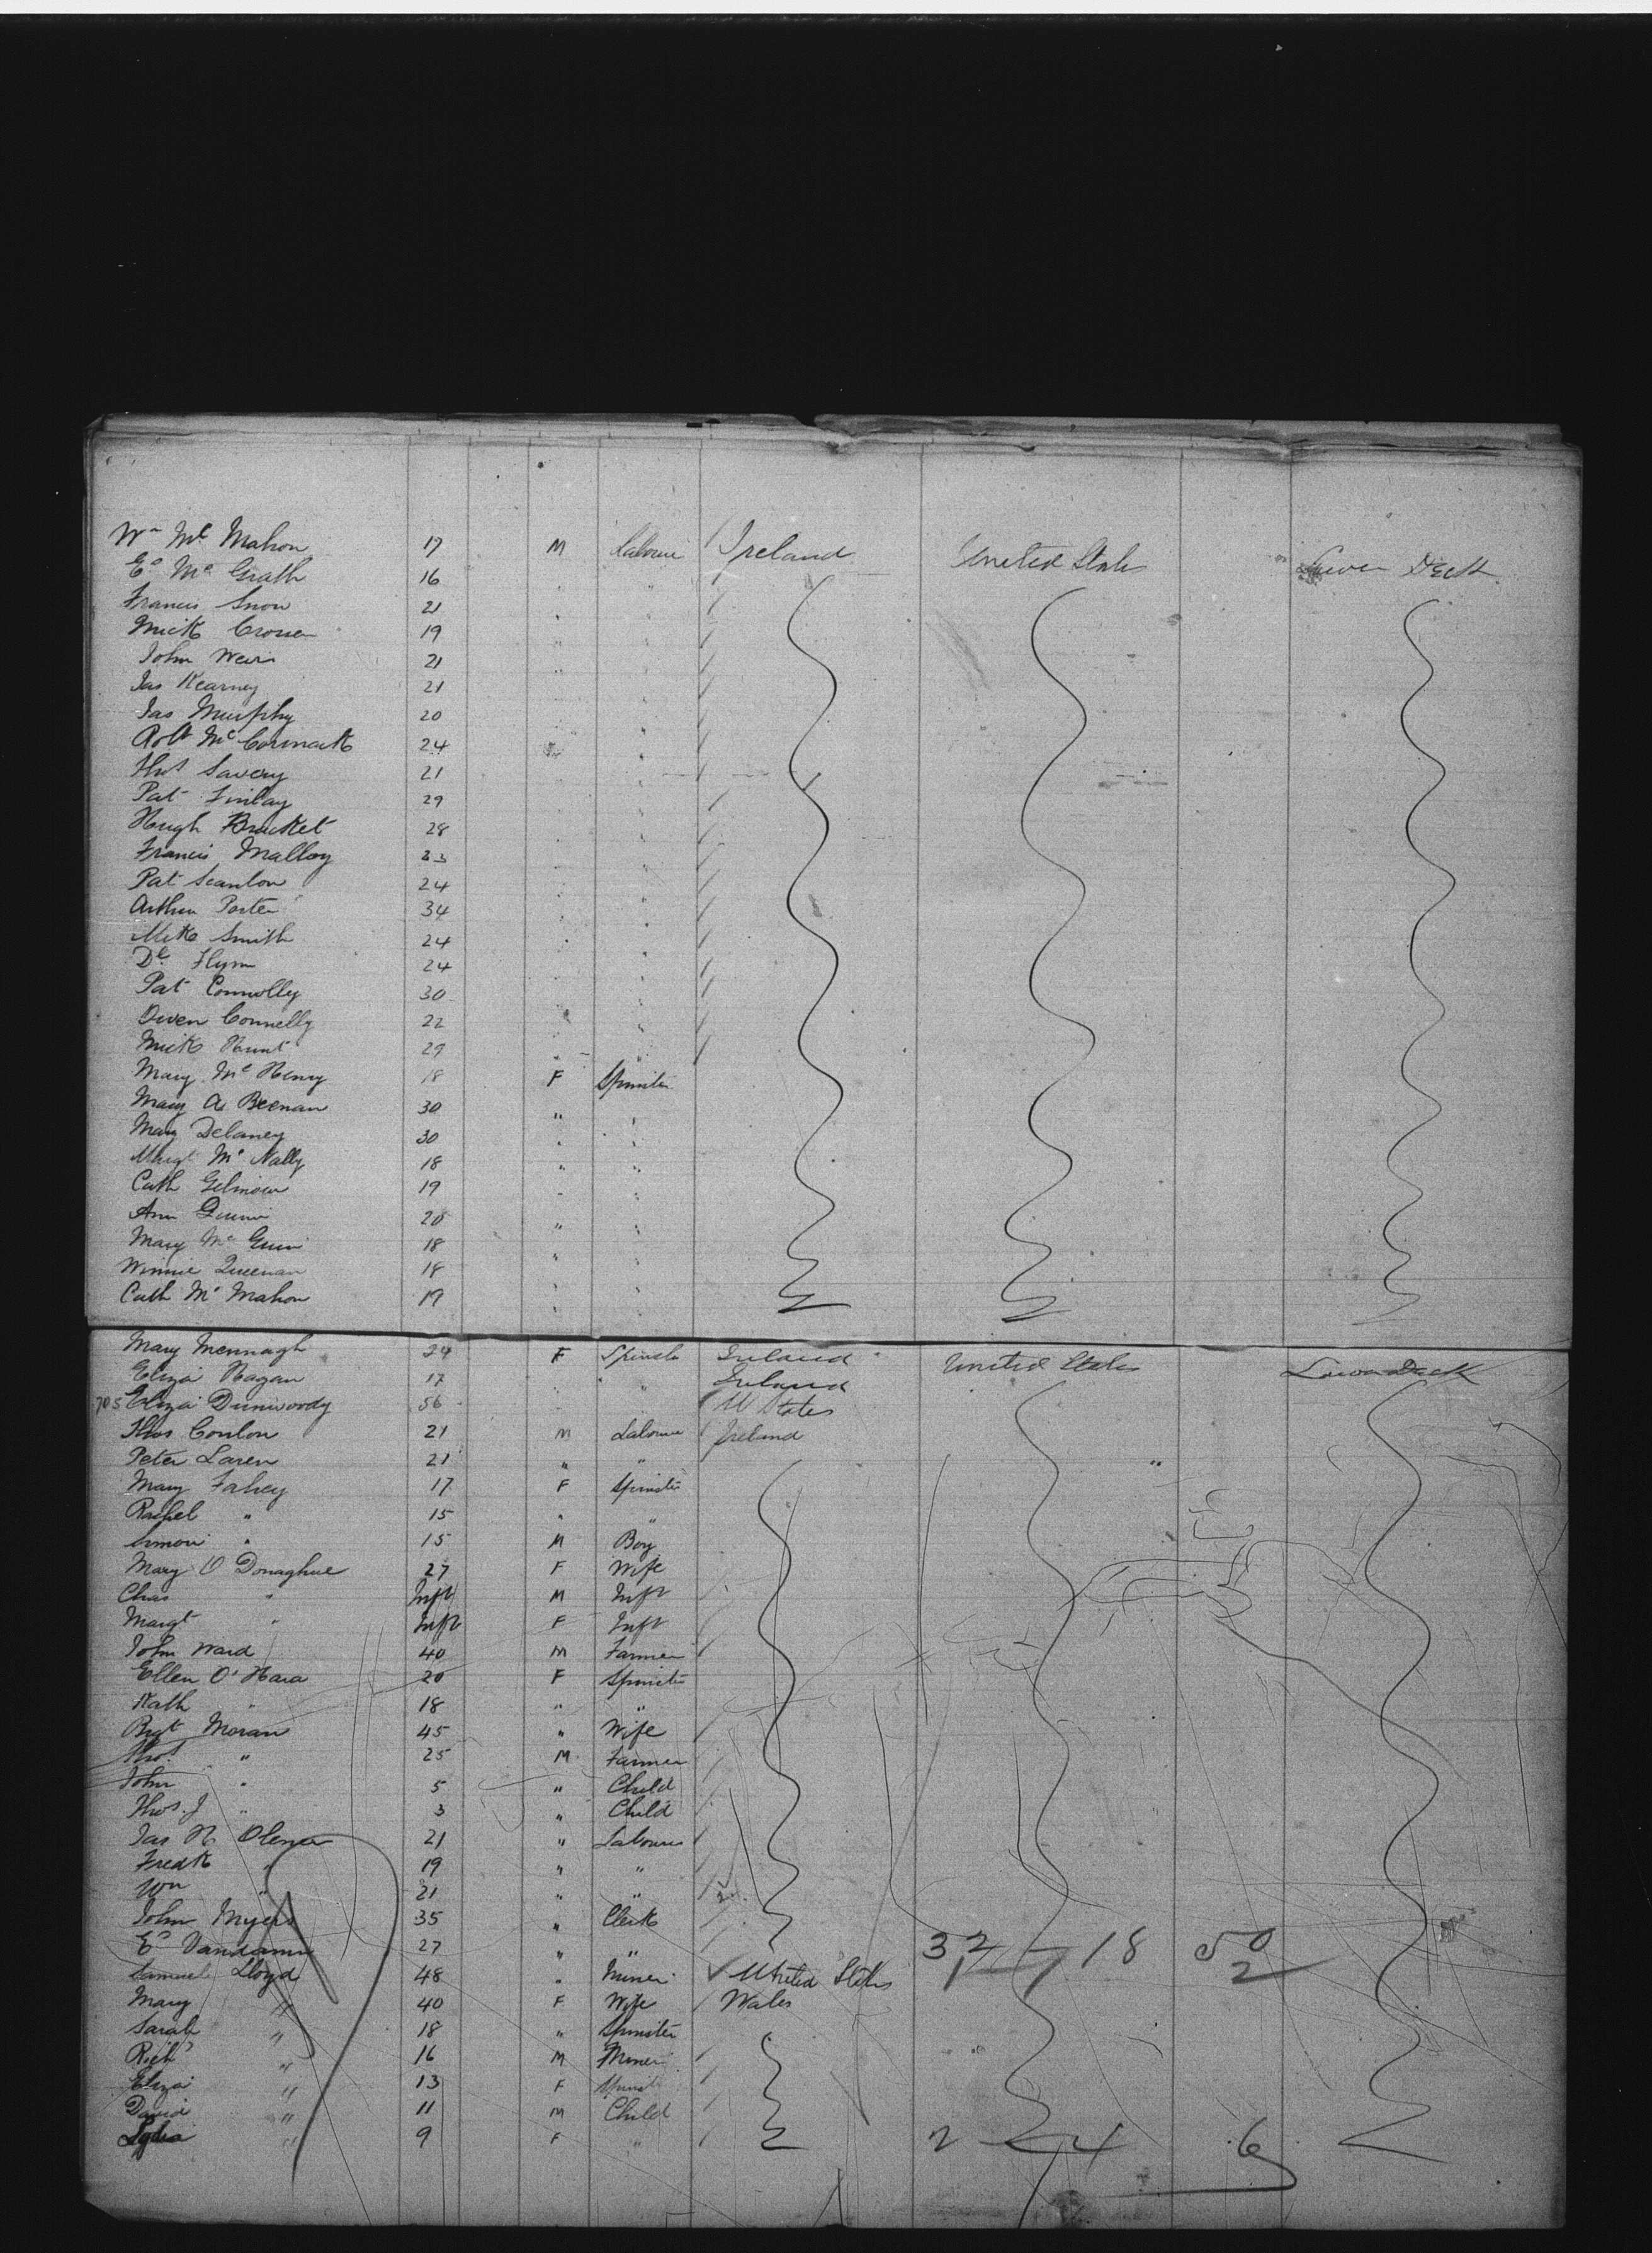 Wm Mc Mahon 17 M Laborer Ireland United States Lower Deck
Ed Mc Grath 16 " "
Francis Snow 21 " "
Mick Cronen 19 " "
John Weir 21 " "
Jas Kearney 21 " "
Jas Murphy 20 " "
Robt McCormack 24 " "
Thos Savery 21 " "
Pat Finlay 29 " "
Hugh Bracket 28 " "
Francis Malloy 23 " "
Pat Scanlon 24 " "
Arthur Porter 34 " "
Mick Smith 24 " "
Dl Flynn 24 " "
Pat Connolly 30 " "
Owen Connelly 22 " "
Mick Hunt 29 " "
Mary Mc Henry 18 F Spinster
Mary A Beenan 30 " "
Mary Delaney 30 " "
Margt Mc Nally 18 " "
Cath Gilmour 19 " "
Ann 20 " "
Mary Mc 18 " "
Winnie Queenan 18 " "
Cath Mc Mahon 19 " "
Mary Mennagh 24 F Spinster Ireland United States Lower Deck
Eliza Hagan 17 " " Ireland
705 Eliza Dunwoody 56 " U States
Thos Conlon 21 M Laborer Ireland
Peter Laren 21 " " "
Mary Fahey 17 F Spinster
Rachel " 15 " "
Simon " 15 M Boy
Mary O Donaghue 27 F Wife
Chas " Inft M Inft
Margt " Inft F Inft
John Ward 40 M Farmer
Ellen O'Hara 20 F Spinster
Kath " 18 " "
Brgt Moran 45 " Wife
Thos " 25 M Farmer
John " 5 " Child
Thos J " 3 " Child
Jas H 21 " Labourer
Fredk " 19 " "
Wm " 21 " "
John Myers 35 " Clerk
Ed Vandamm 27 " " 32 18 50
Samuel Lloyd 48 " Miner United States 2
Mary " 40 F Wife Wales
Sarah " 18 " Spinster
Richd " 16 M Miner
Eliza " 13 F Spinst
David " 11 M Child
Lydia " 9 F " 2 4 6